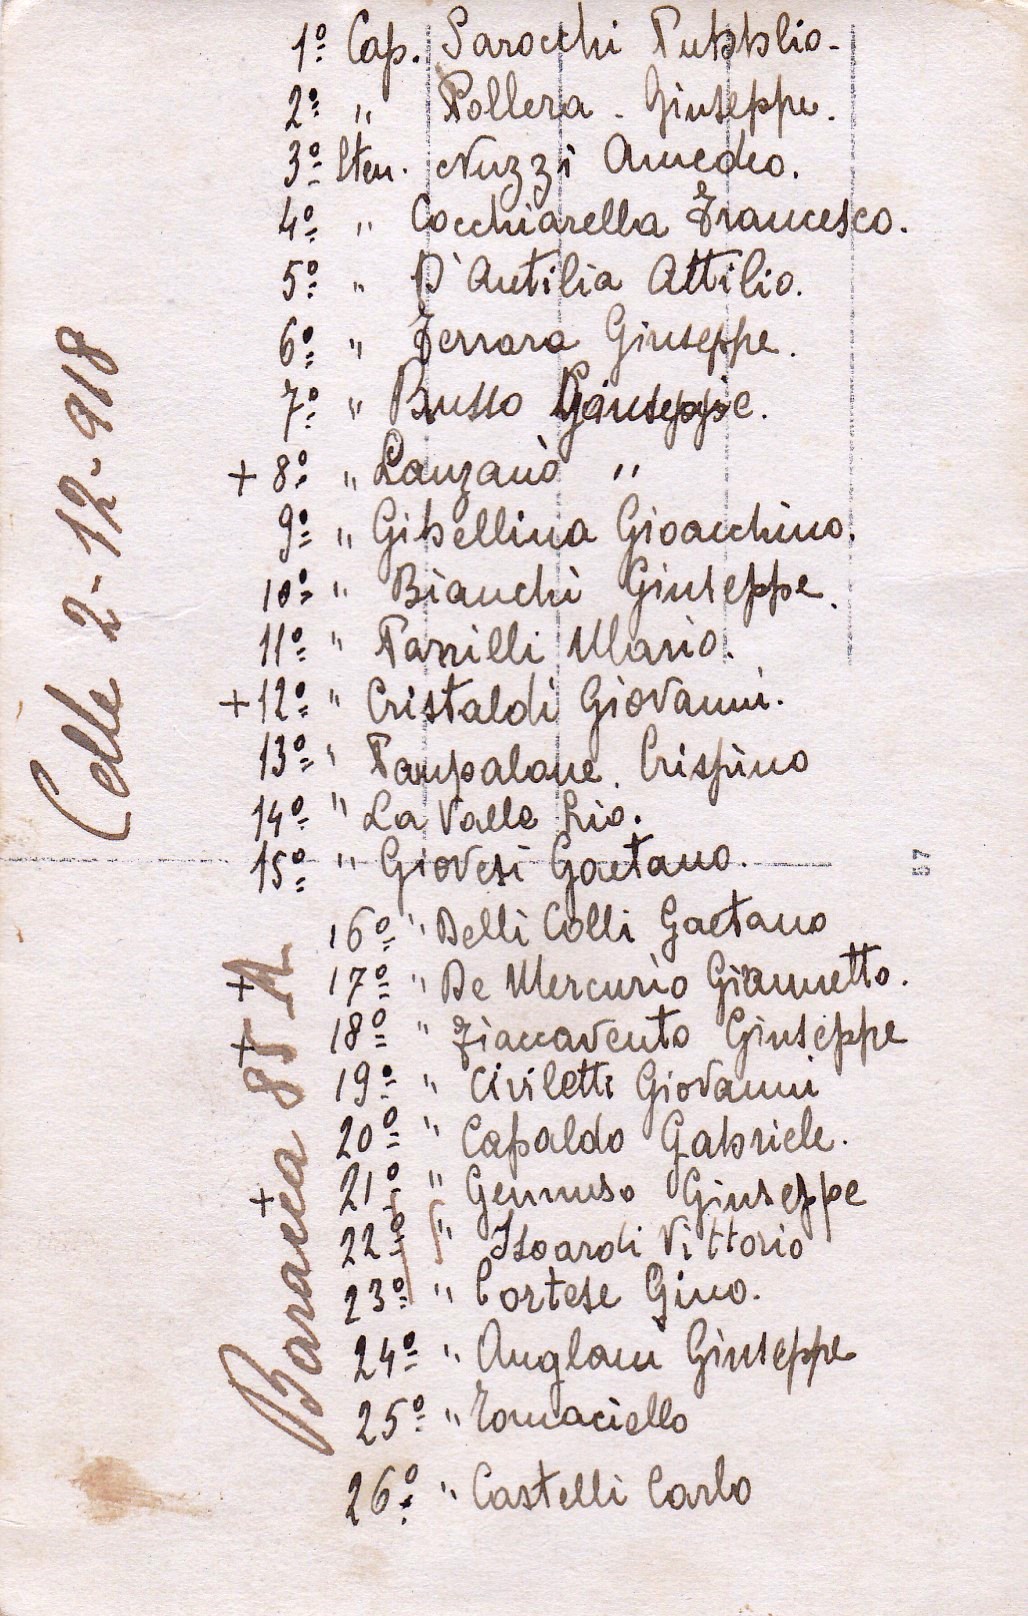 1º Cap. Sarocchi Pubblio-
2º " Pollera. Giuseppe.
3º Sten. Nuzzi Amedeo.
4º " Cocchiarella Francesco.
5º " D'Antilia Attilio.
6º " Ferrara Giuseppe.
7º " Busso Giuseppe.
+ 8º " Lanzanò "
9º " Gibellina Gioacchino.
10º " Bianchi Giuseppe.
11º " Mario.
+ 12º " Cristaldi Giovanni.
13º " Pampalone. Crispino
14º " La Valle Lio.
15º " Giovesi Gaetano.
16º " Delli Colli Gaetano
+ 17º " De Mercurio Giannetto.
+ 18º " Fiaccavento Giuseppe
19º " Civiletti Giovanni
20º " Capaldo Gabriele.
+ 21º " Gennuso Giuseppe
22º " Isoardi Vittorio
23º " Cortese Gino.
24º " Anglani Giuseppe
25º " Tomaciello
26º " Castelli Carlo
Celle 2-12-918
Baracca 85 A
57